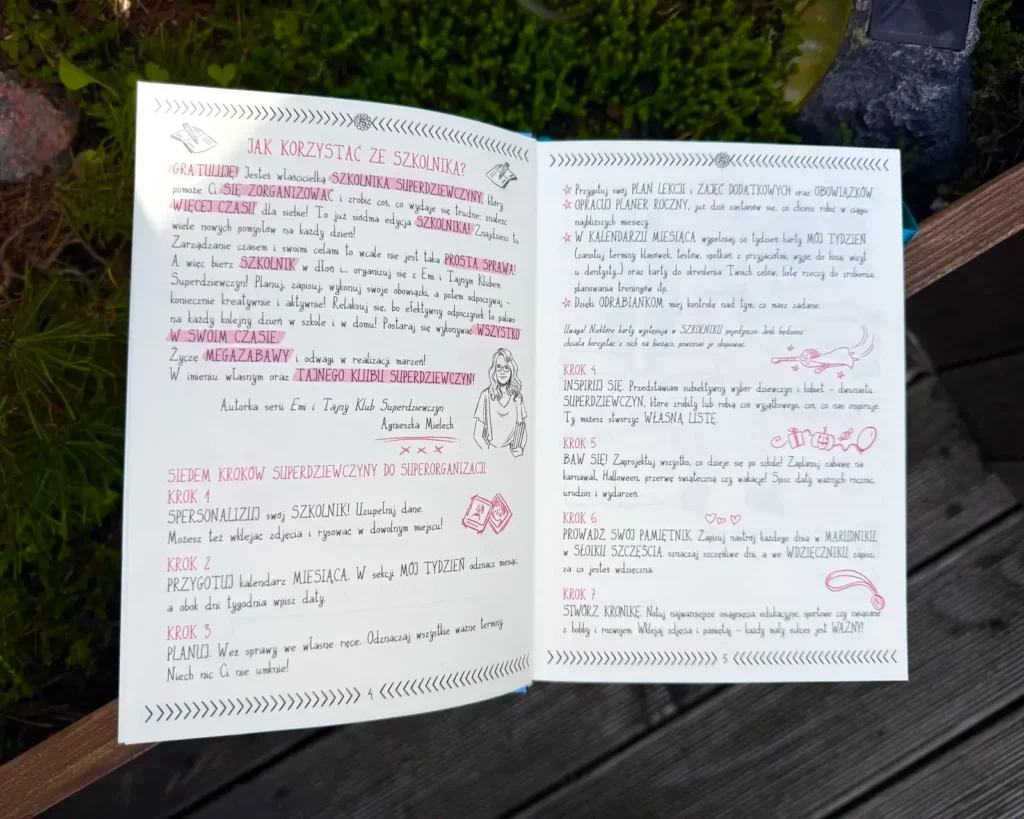 JAK KORZYSTAĆ ZE SZKOLNIKA?
GRATULUJĘ! Jesteś właścicielką SZKOLNIKA SUPERDZIEWCZYNY, który
pomoże Ci SIĘ ZORGANIZOWAĆ i zrobić coś, co wydaje się trudne: znaleźć
WIĘCEJ CZASU dla siebie! To już siódma edycja SZKOLNIKA! Znajdziesz tu
wiele nowych pomysłów na każdy dzień!
Zarządzanie czasem i swoimi celami to wcale nie jest taka PROSTA SPRAWA!
A więc bierz SZKOLNIK w dłoń i... organizuj się z Emi i Tajnym Klubem
Superdziewczyn! Planuj, zapisuj, wykonuj swoje obowiązki, a potem odpoczywaj –
koniecznie kreatywnie i aktywnie! Relaksuj się, bo efektywny odpoczynek to paliwo
na każdy kolejny dzień w szkole i w domu! Postaraj się wykonywać WSZYSTKO
W SWOIM CZASIE.
Życzę MEGAZABAWY i odwagi w realizacji marzeń!
W imieniu własnym oraz TAJNEGO KLUBU SUPERDZIEWCZYN!
Autorka serii Emi i Tajny Klub Superdziewczyn
Agnieszka Mielech
SIEDEM KROKÓW SUPERDZIEWCZYNY DO SUPERORGANIZACJI
KROK 1
SPERSONALIZUJ swój SZKOLNIK! Uzupełnij dane.
Możesz też wklejać zdjęcia i rysować w dowolnym miejscu!
KROK 2
PRZYGOTUJ kalendarz MIESIĄCA. W sekcji MÓJ TYDZIEŃ odznacz miesiąc,
a obok dni tygodnia wpisz daty.
KROK 3
PLANUJ. Weź sprawy we własne ręce. Odznaczaj wszystkie ważne terminy.
Niech nic Ci nie umknie!
4
Przygotuj swój PLAN LEKCJI i ZAJĘĆ DODATKOWYCH oraz OBOWIĄZKÓW.
OPRACUJ PLANER ROCZNY, już dziś zastanów się, co chcesz robić w ciągu
najbliższych miesięcy.
W KALENDARZU MIESIĄCA wypełniaj co tydzień karty MÓJ TYDZIEŃ
(zanotuj terminy klasówek, testów, spotkań z przyjaciółmi, wyjść do kina, wizyt
u dentysty...) oraz karty do określenia Twoich celów, listę rzeczy do zrobienia,
planowania treningów itp.
Dzięki ODRABIANKOM miej kontrolę nad tym, co masz zadane.
Uwaga! Niektóre karty występują w SZKOLNIKU pojedynczo. Jeśli będziesz
chciała korzystać z nich na bieżąco, powinnaś je skopiować.
KROK 4
INSPIRUJ SIĘ. Przedstawiam subiektywny wybór dziewczyn i kobiet – dwunastu
SUPERDZIEWCZYN, które zrobiły lub robią coś wyjątkowego, coś, co nas inspiruje.
Ty możesz stworzyć WŁASNĄ LISTĘ.
KROK 5
BAW SIĘ! Zaprojektuj wszystko, co dzieje się po szkole! Zaplanuj zabawę na
karnawał, Halloween, przerwę świąteczną czy wakacje! Spisz daty ważnych rocznic,
urodzin i wydarzeń.
KROK 6
PROWADŹ SWÓJ PAMIĘTNIK. Zapisuj nastrój każdego dnia w MARUDNIKU,
w SŁOIKU SZCZĘŚCIA oznaczaj szczęśliwe dni, a we WDZIĘCZNIKU zapisz,
za co jesteś wdzięczna.
KROK 7
STWÓRZ KRONIKĘ. Notuj najważniejsze osiągnięcia edukacyjne, sportowe czy związane
z hobby i rozwojem. Wklejaj zdjęcia i pamiętaj – każdy mały sukces jest WAŻNY!
5